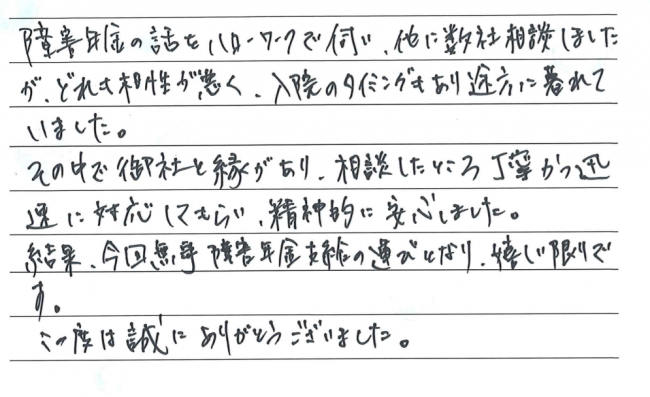 障害年金の話をハローワークで伺い、他に数社相談しました
が、どれも相性が悪く、入院のタイミングもあり途方に暮れて
いました。
その中で御社と縁があり、相談したところ丁寧かつ迅
速に対応してもらい、精神的に安心しました。
結果、今回無事障害年金支給の運びとなり、嬉しい限りで
す。
この度は誠にありがとうございました。